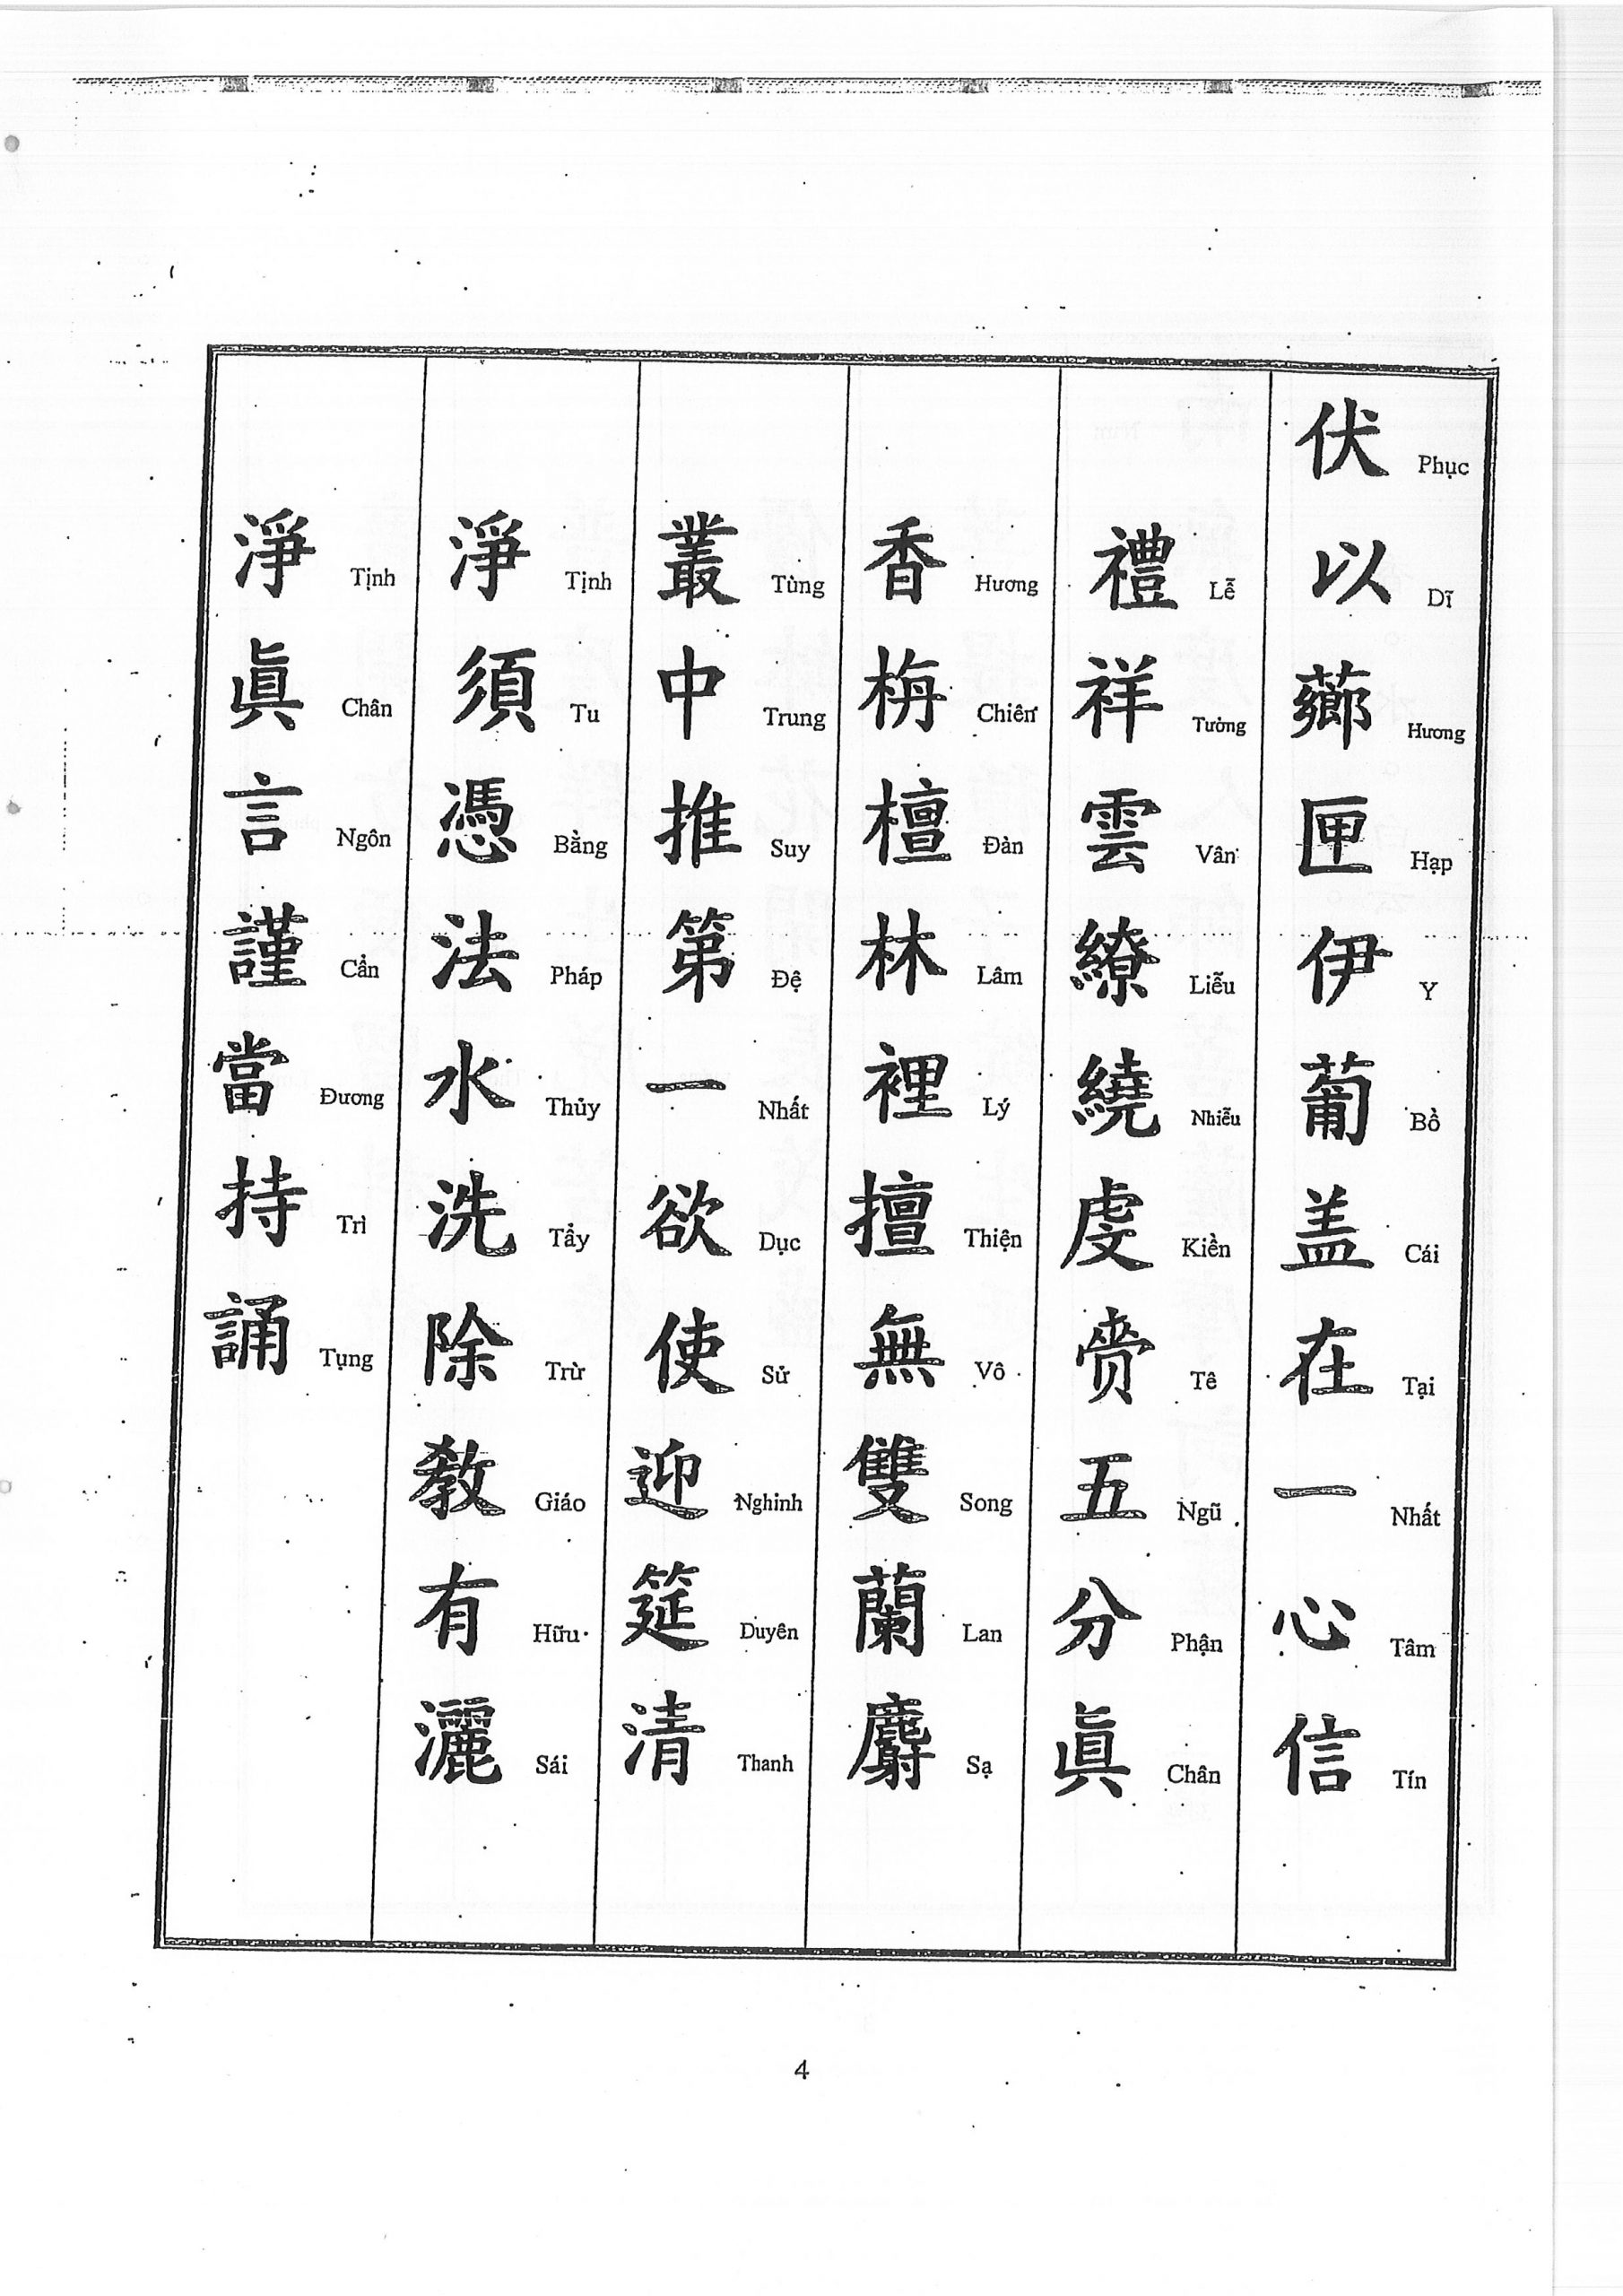 伏以薌匣伊葡盖在一心信
Phục Dĩ Hương Hạp Y Bồ Cái Tại Nhất Tâm Tín
禮祥雲繚繞虔赍五分眞
Lễ Tường Vân Liễu Nhiễu Kiền Tê Ngũ Phận Chân
香栴檀林裡擅無雙蘭麝
Hương Chiên Đàn Lâm Lý Thiện Vô Song Lan Sạ
叢中推第一欲使迎筵清
Tùng Trung Suy Đệ Nhất Dục Sử Nghinh Duyên Thanh
淨須憑法水洗除教有灑
Tịnh Tu Bằng Pháp Thủy Tẩy Trừ Giáo Hữu Sái
淨眞言謹當持誦
Tịnh Chân Ngôn Cẩn Đương Trì Tụng
4